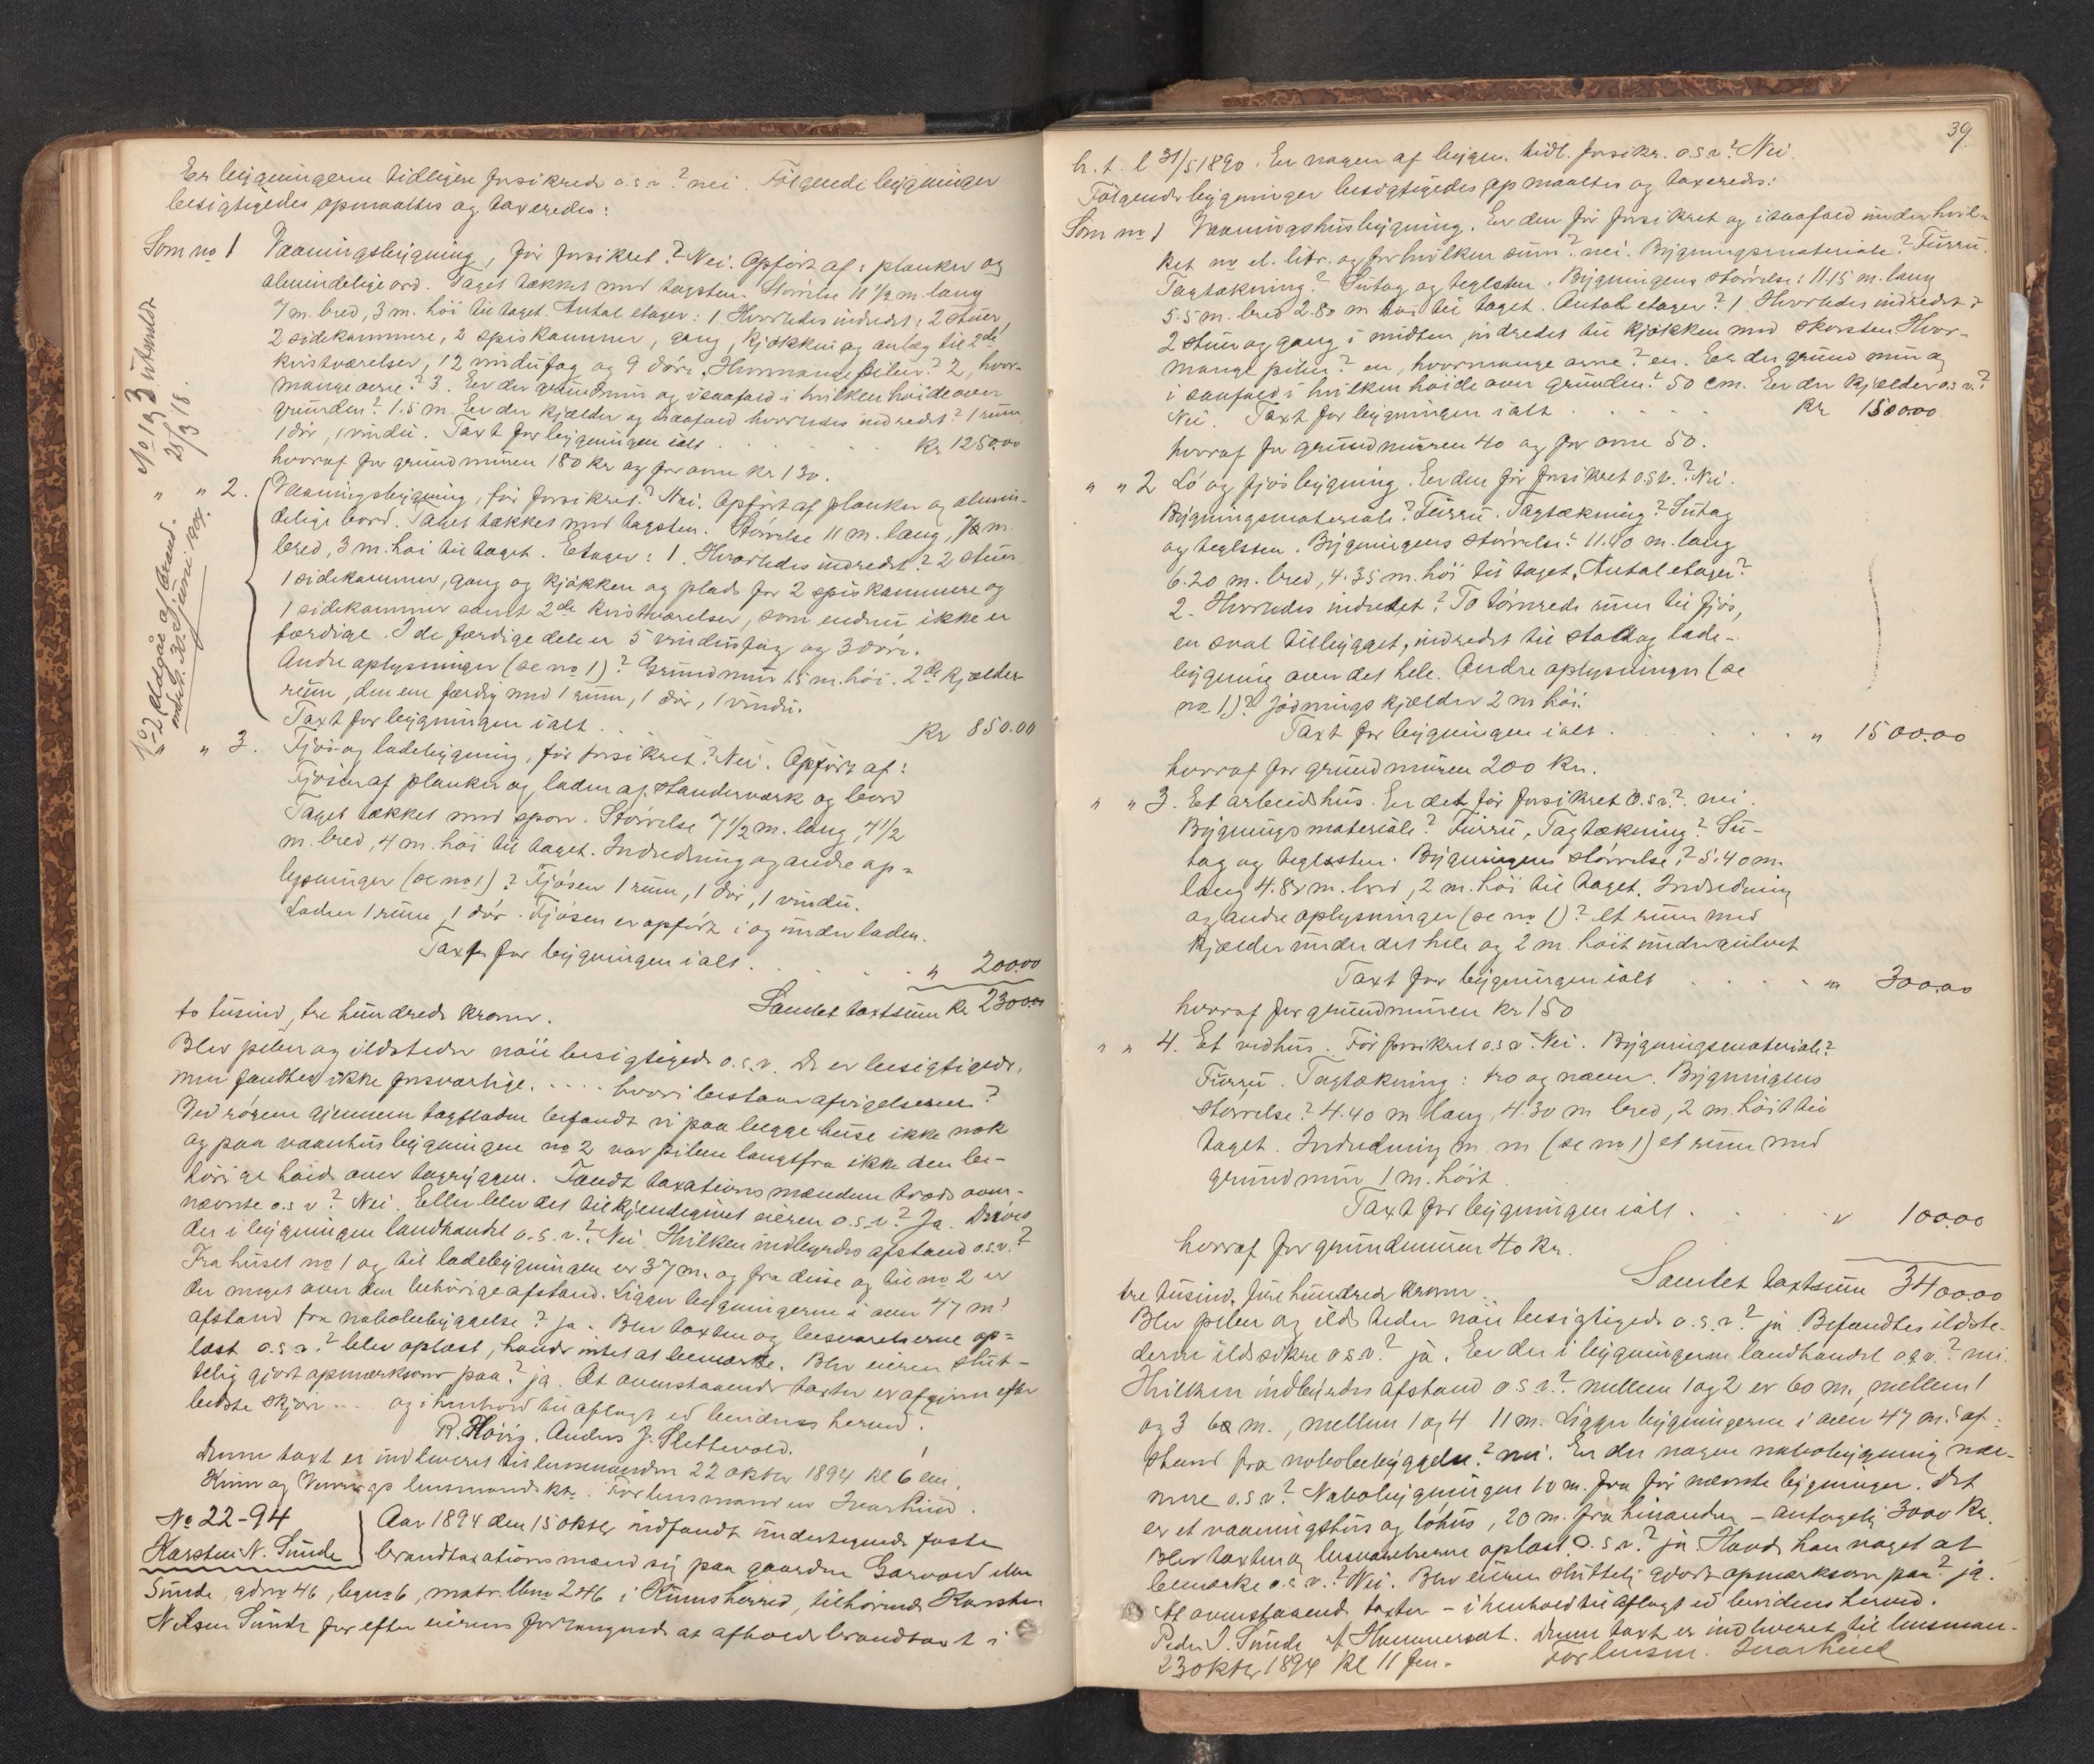 Er bygningerne tidligere forsikrede o.s.v.? nei. Følgende bygninger
besigtigedes opmaaltes og taxeredes:
Som no 1 Vaaningsbygning, før forsikret? Nei. Opført af: planker og
almindelige bord. Taget tækket med tagsten. Størrelse 11 1/2 m. lang
7 m. bred, 3 m. høi til taget. Antal etager: 1. Hvorledes indredet: 2 stuer,
2 sidekammere, 2 spiskammer, gang, kjøkken og anlæg til 2de
kvistværelser, 12 vindufag og 9 døre. Hvormange piber? 2, hvor-
mange ovne? 3. Er der grundmur og isaafald i hvilken høide over
grunden? 1.5 m. Er der kjælder og isaafald hvorledes indredet? 1 rum
1 dør, 1 vindu. Taxt for bygningen ialt . . . Kr 1250.00
hvoraf for grundmuren 180 kr og for ovne kr 130.
" " 2. Vaaningsbygning, før forsikret? Nei. Opført af planker og almin-
delige bord. Taget tækket med tagsten. Størrelse 11 m. lang, 7 m.
bred, 3 m. høi til taget. Etager: 1. Hvorledes indredet? 2 stuer,
1 sidekammer, gang og kjøkken og plads for 2 spiskammere og
1 sidekammer samt 2de kvistværelser, som endnu ikke er
færdige. I de færdige dele er 5 vindusfag og 3 døre.
Andre oplysninger (se no 1)? Grundmur 1.5 m. høi. 2de kjælder-
rum, den ene færdig med 1 rum, 1 dør, 1 vindu.
Taxt for bygningen ialt . . Kr 850.00
" 3. Fjøs og ladebygning, før forsikret? Nei. Opført af:
Fjøsen af planker og laden af standerværk og bord
Taget tækket med spon. Størrelse 7 1/2 m. lang, 4 1/2
m. bred, 4 m. høi til taget. Indredning og andre op-
lysninger (se no 1)? Fjøsen 1 rum, 1 dør, 1 vindu.
Laden 1 rum, 1 dør. Fjøsen er opført i og under laden.
Taxt for bygningen ialt . . . . " 200.00
Samlet taxtsum kr 2300.00
to tusind, tre hundrede kroner.
Blev piber og ildsteder nøie besigtigede o.s.v. De er besigtigede,
men fandtes ikke forsvarlige. . . . . hvori bestaar afvigelserne?
Ved rørene gjennem tagfladen befandt vi paa begge huse ikke nok
og paa vaanhusbygningen no 2 var piben langtfra ikke den be-
hørige høide over tagryggen. Fandt taxationsmændene trods oven-
nævnte o.s.v? Nei. Eller blev det tilkjendegivet eieren o.s.v? Ja. Drives
der i bygningen landhandel o.s.v.? Nei. Hvilken indbyrdes afstand o.s.v.?
Fra huset no 1 og til ladebygningen er 37 m. og fra disse og til no 2 er
der meget over den behørige afstand. Ligger bygningerne i over 47 m!
afstand fra nabobebyggelse? ja. Blev taxten og besvarelserne op-
læst o.s.v.? blev oplæst, havde intet at bemærke. Blev eieren slut-
telig gjort opmærksom paa? ja. At ovenstaaende taxter er afgivne efter
bedste skjøn ... og i henhold til aflagt ed bevidnes herved.
R. Høvig. Anders J. Slettevold.
Denne taxt er indleveret til lensmanden 22 oktbr 1894 kl 6 em.
Kinn og Vevrings lensmandskt. For lensmanden Ivar Lind.
No 22-94
Karsten N. Sunde
Aar 1894 den 15 oktbr indfandt undertegnede faste
brandtaxationsmænd sig paa gaarden Garvold eller
Sunde, gdno 46, bgno 6, matr. lbno 246 i Kinns herred, tilhørende Karsten
Nilsen Sunde for efter eierens forlangende at afholde brandtaxt i
No 1 og 3 utmeldt
25/3 18.
No 2 Afgaa af brand.
30. Juni 1904.
39.
h. t. l 31/5 1890. Er nogen af bygn. tidl. forsikr. o.s.v? Nei.
Følgende bygninger besigtigedes opmaaltes og taxeredes:
Som no 1 Vaaningshusbygning. Er den før forsikret og isaafald under hvil-
ket no el. litr. og for hvilken sum? nei. Bygningsmateriale? Furru.
Tagtækning? Sutag og teglsten. Bygningens størrelse: 11.15 m. lang
5.5 m. bred 2.80 m høi til taget. Antal etager? 1. Hvorledes indredet?
2 stuer og gang i midten, indredet til kjøkken med skorsten. Hvor-
mange piber? en, hvormange ovne? en. Er der grundmur og
i saafald i hvilken høide over grunden? 50 cm. Er der kjælder o.s.v.?
Nei. Taxt for bygningen ialt . . . . Kr 1500.00
hvoraf for grundmuren 40 og for ovne 50.
" " 2 Lø og fjøsbygning. Er den før forsikret o.s.v.? Nei.
Bygningsmateriale? Furru. Tagtækning? Sutag
og teglsten. Bygningens størrelse? 11.40 m. lang
6.20 m. bred, 4.35 m. høi til taget. Antal etager?
2. Hvorledes indredet? To tømrede rum til fjøs,
en sval tilbygget, indredet til stald og lade-
bygning over det hele. Andre oplysninger (se
no 1)? Jødningskjælder 2 m høi.
Taxt for bygningen ialt . . . . " 1500.00
hvoraf for grundmuren 200 Kr.
" " 3. Et arbeidshus. Er det før forsikret o.s.v.? nei.
Bygningsmateriale? Furru. Tagtækning? Su-
tag og teglsten. Bygningens størrelse? 5.40 m.
lang 4.80 m. bred, 2 m. høi til taget. Indredning
og andre oplysninger (se no 1)? et rum med
kjælder under det hele og 2 m. høit under gulvet
Taxt for bygningen ialt . . . . " 300.00
hvoraf for grundmuren kr 150
" " 4. Et vedhus. Før forsikret o.s.v. Nei. Bygningsmateriale?
Furru. Tagtækning: tro og næver. Bygningens
størrelse? 4.40 m lang, 4.30 m. bred, 2 m. høit til
taget. Indredning m. m. (se no 1) et rum med
grundmur 1 m. høit.
Taxt for bygningen ialt . . . . " 100.00
hvoraf for grundmuren 40 Kr.
Samlet taxtsum 3400.00
tre tusind, fire hundred kroner.
Blev piber og ildsteder nøie besigtigede o.s.v.? ja. Befandtes ildste-
derne ildssikre o.s.v.? ja. Er der i bygningerne landhandel o.s.v.? nei.
Hvilken indbyrdes afstand o.s.v.? mellem 1 og 2 er 60 m, mellem 1
og 3 m., mellem 1 og 4 11 m. Ligger bygningerne i over 47 m.s af-
stand fra nabobebyggelse? nei. Er der nogen nabobygning nær-
mere o.s.v? Nabobygningen 10 m. fra før nævnte bygninger. Det
er et vaaningshus og løhus, 20 m. fra hinanden - antagelig 3000 Kr.
Blev taxten og besvarelserne oplæst o.s.v? ja. Havde han noget at
bemærke o.s.v.? Nei. Blev eieren sluttelig gjort opmærksom paa? ja.
At ovenstaaende taxter - i henhold til aflagt ed bevidnes herved.
Peder J. Sunde A. Hammerset. Denne taxt er indleveret til lensman-
23 oktbr 1894 kl 11 fm. For lensm. Ivar Lind